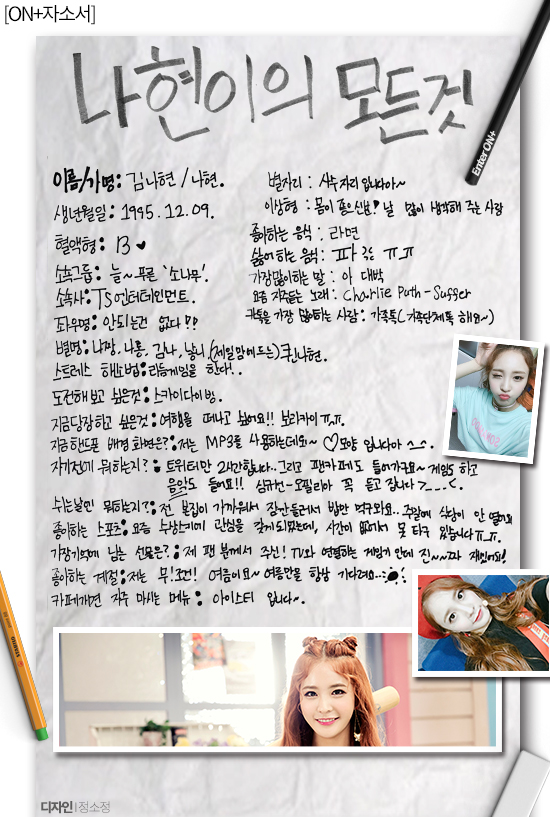 [ON+자소서]
나현이의 모든것
Enter ON+
이름/가명: 김나현 / 나현.
별자리 : 사수자리 입니다아~
생년월일 : 1995.12.09.
이상형 : 몸이 좋으신분! 날 많이 생각해 주는 사람
혈액형 : B ♥
좋아하는 음식 : 라면
싫어하는 음식 : 파 ㅠㅠ
소속그룹 : 늘~ 푸른 '소나무'.
가장많이하는 말 : 아 대박
소속사 : TS엔터테인먼트.
요즘 자주듣는 노래 : Charlie Puth - Suffer
좌우명 : 안되는건 없다!?
카톡을 가장 많이하는 사람 : 가족톡(가족단체톡 해요~)
별명 : 나짱, 나롱, 김나, 낳니, (제일맘에드는)퀸나현.
스트레스 해소법 : 리듬게임을 한다!..
도전해보고 싶은것 : 스카이다이빙.
지금당장하고 싶은것 : 여행을 떠나고 싶어요!! 보라카이ㅠㅠ.
지금핸드폰 배경화면은? : 저는 MP3를 사용하는데요~ ♡모양 입니다아 ^_^.
자기전에 뭐하는지? : 트위터만 2시간합니다.. 그리고 팬카페도 들어가구요~ 게임도 하고
음악도 들어요!! 심규선-오필리아 꼭 듣고 잡니다 >__<.
쉬는날엔 뭐하는지? : 전 본집이 가까워서 잠깐들러서 밥만 먹구와요.. 주말에 식당이 안 열어요
좋아하는 스포츠 : 요즘 수상스키에 관심을 갖게되었는데, 시간이 없어서 못 타구 있습니다ㅠㅠ.
가장기억에 남는 선물은? : 제 팬분께서 주신! TV와 연결하는 게임기 인데 진~~짜 재밌어요!
좋아하는 계절 : 저는 무!조건! 여름이요~ 여름만을 항상 기다려요..
카페가면 자주 마시는 메뉴 : 아이스티 입니다~.
디자인 | 정소정